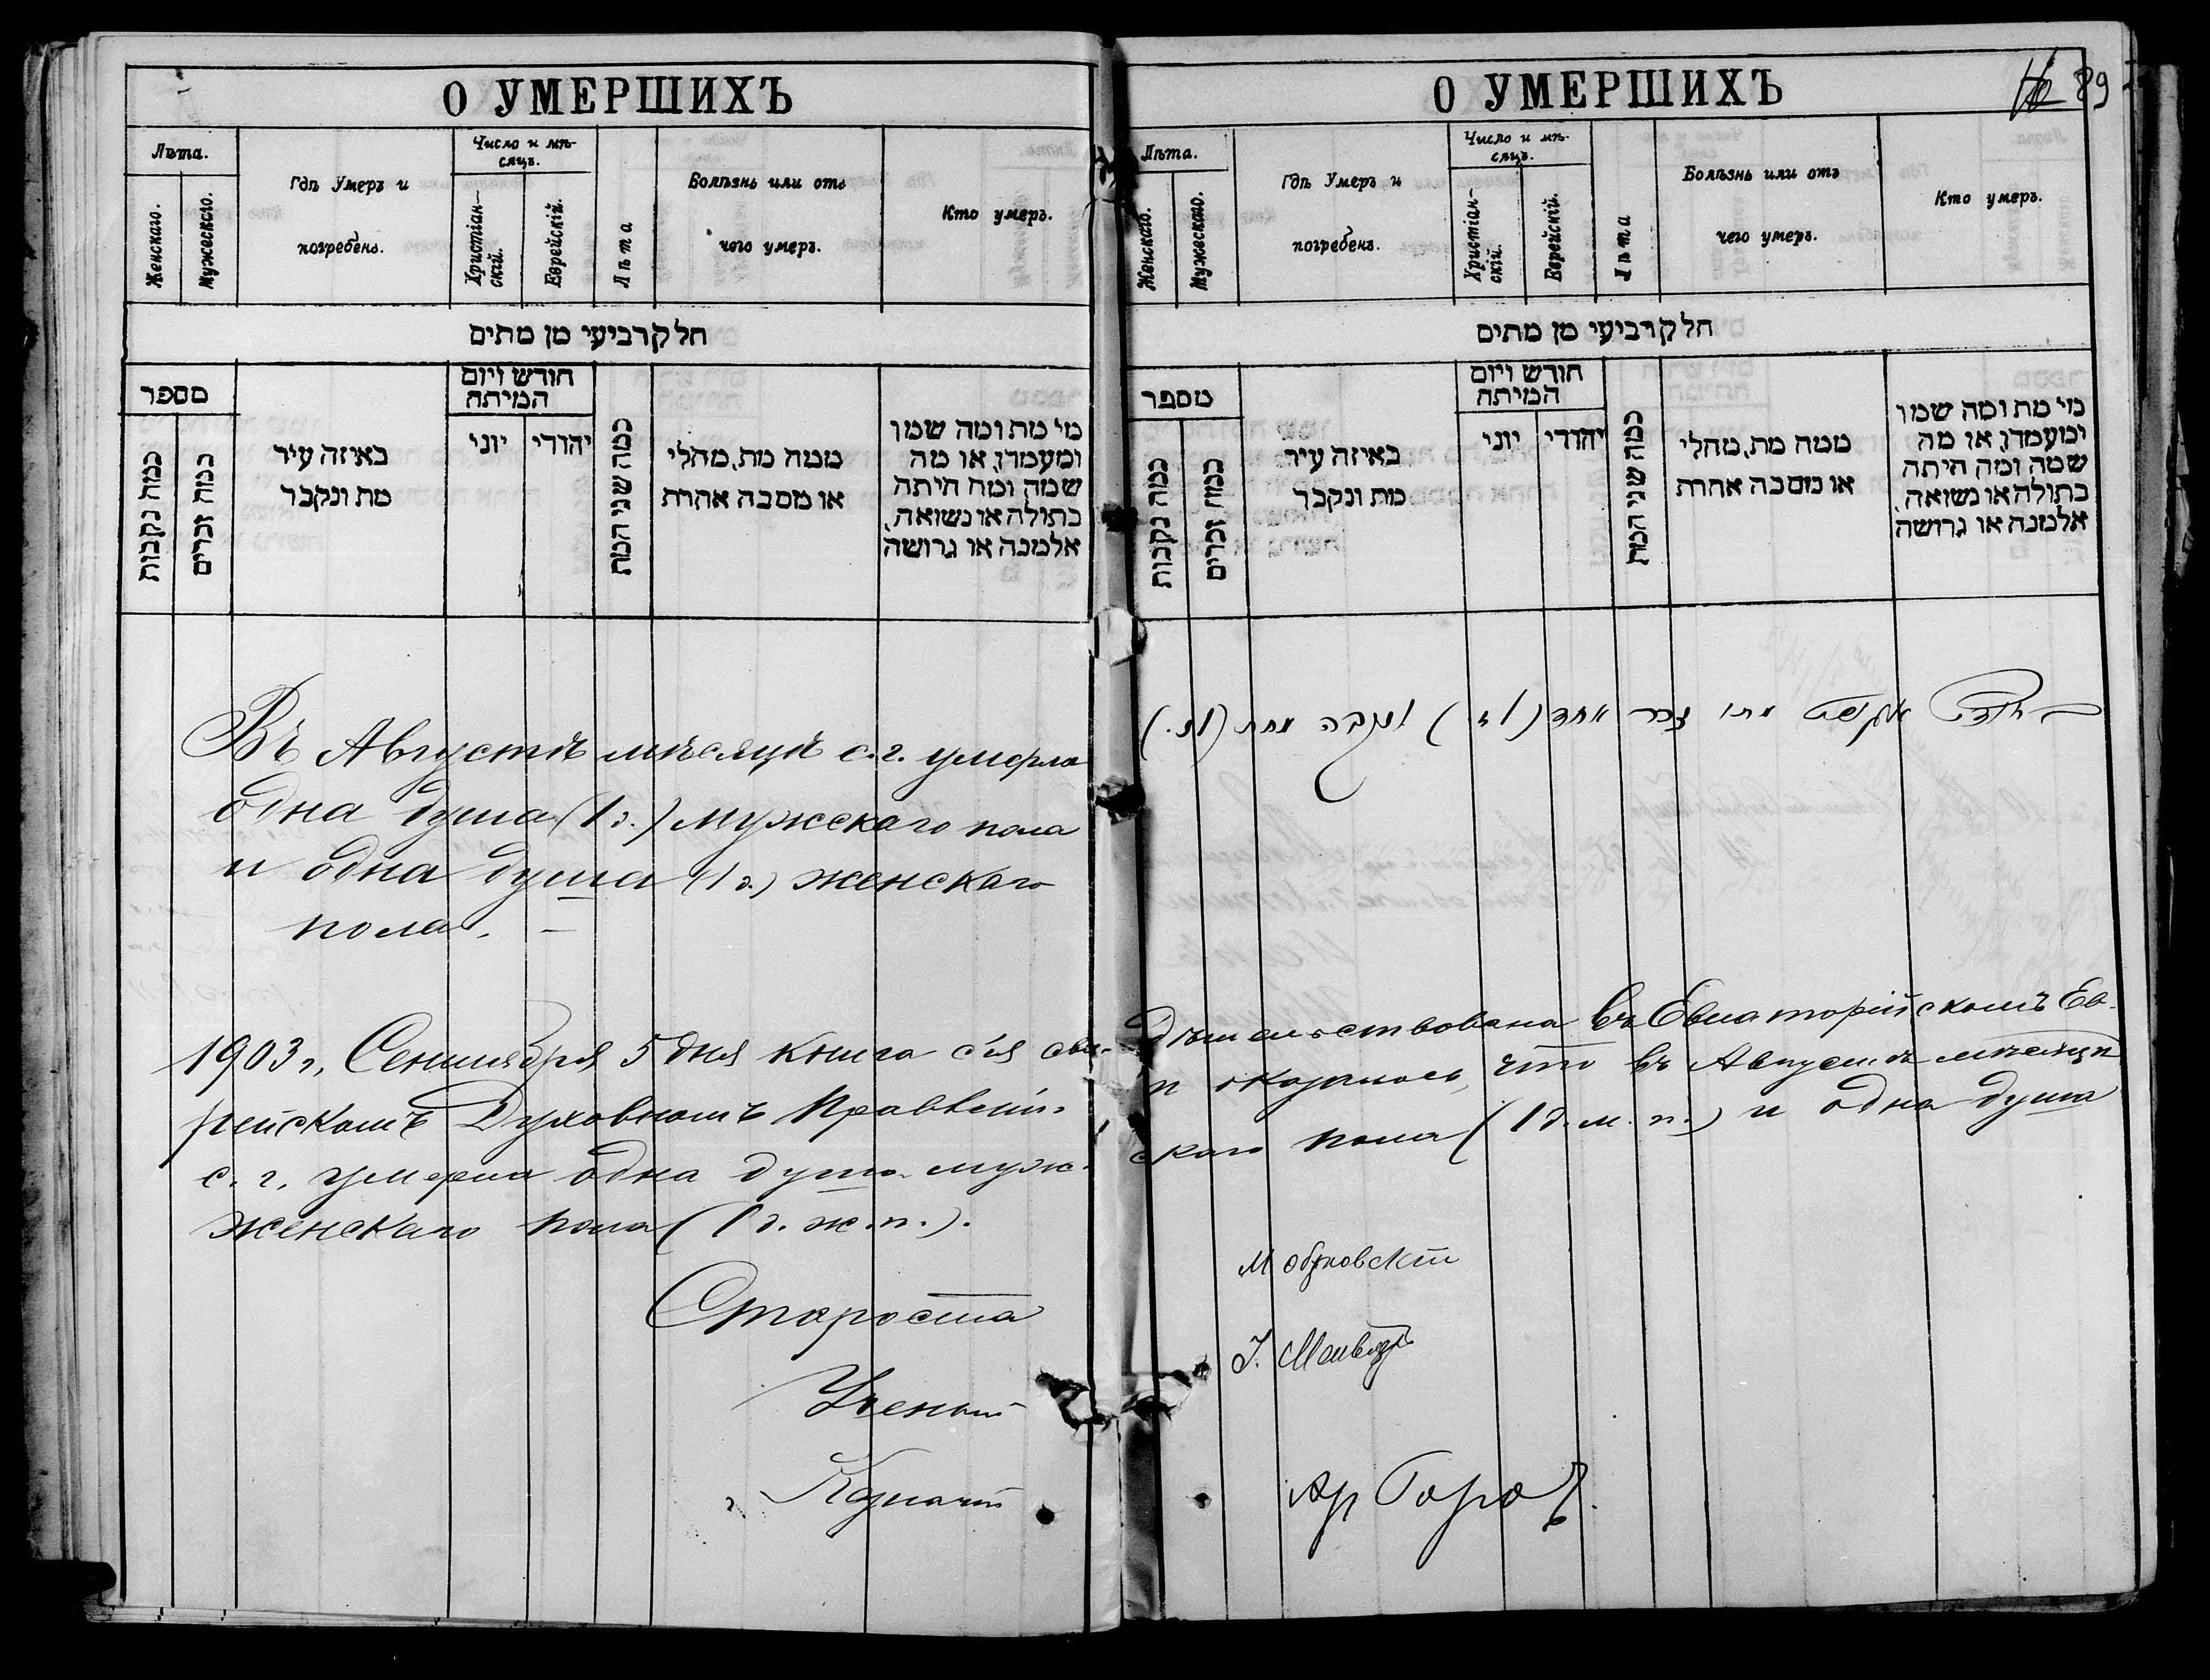 О УМЕРШИХЪ
Лѣта.
Женскаго.
Мужескаго.
Гдѣ Умеръ и
погребенъ.
Число и мѣ-
сяцъ.
Христіан-
скій.
Еврейскій.
Лѣта
Болѣзнь или отъ
чего умеръ.
Кто умеръ.
חלק רביעי מן מתים
מספר
כמה נקבות
כמה זכרים
באיזה עיר
מת ונקבר
חודש ויום
המיתה
יוני
יהודי
כמה שני המת
ממה מת, מחלי
או מסבה אחרת
מי מת ומה שמו
ומעמדו, או מה
שמה ומה היתה
בתולה או נשואה,
אלמנה או גרושה
Въ Августѣ мѣсяцѣ с. г. умерла
одна душа (1 д.) мужскаго пола
и одна душа (1 д.) женскаго
пола. —
1903 г, Сентября 5 дня книга сія сви-
рейскомъ Духовномъ Правленіи
с. г. умерла одна душа муж-
женскаго пола (1 д. ж. п.).
Староста
Ученый
Казначей
О УМЕРШИХЪ
89
Лѣта.
Женскаго.
Мужескаго.
Гдѣ Умеръ и
погребенъ.
Число и мѣ-
сяцъ.
Христіан-
скій.
Еврейскій.
Лѣта
Болѣзнь или отъ
чего умеръ.
Кто умеръ.
חלק רביעי מן מתים
מספר
כמה נקבות
כמה זכרים
באיזה עיר
מת ונקבר
חודש ויום
המיתה
יוני
יהודי
כמה שני המת
ממה מת, מחלי
או מסבה אחרת
מי מת ומה שמו
ומעמדו, או מה
שמה ומה היתה
בתולה או נשואה,
אלמנה או גרושה
בחודש אוגוסט מתו זכר אחד (1 ז.) ונקבה אחת (1 נ.)
дѣтельствована въ Евпаторійскомъ Ев-
и оказалось, что въ Августѣ мѣсяцѣ
скаго пола (1 д. м. п.) и одна душа